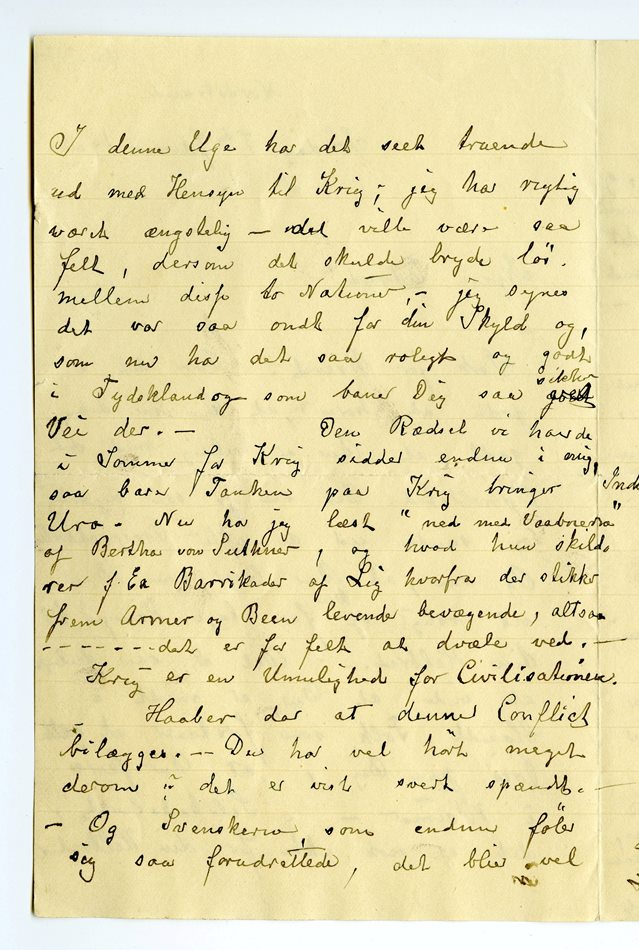 I denne Uge har det seet truende
ud med Hensyn til Krig; jeg har rigtig
været ængstelig — det ville være saa
fælt, dersom det skulde bryde løs.
mellem disse to Nationer, — jeg synes
det var saa ondt for din Skyld og,
som nu har det saa roligt og godt
i Tydskland og som baner Dig saa sikker
Vei der. — Den Rædsel vi havde
i Sommer for Krig sidder endnu i mig,
saa bare Tanken paa Krig bringer
Uro. Nu har jeg læst "ned med Vaabnene"
af Bertha von Suttner, og hvad hun skild
rer f. Ex Barrikader af Lig hvorfra der stikker
frem Armer og Been levende bevægende, altsaa
- - - - - - - det er for felt at dvæle ved. —
Krig er en Umulighed for Civilisationen.
Haaber dar at denne Conflict
bilægges. — Du har vel hørt meget
derom i det er vist svert spændt. —
— Og Svenskerne, som endnu føler
sig saa forudrettede, det blir vel